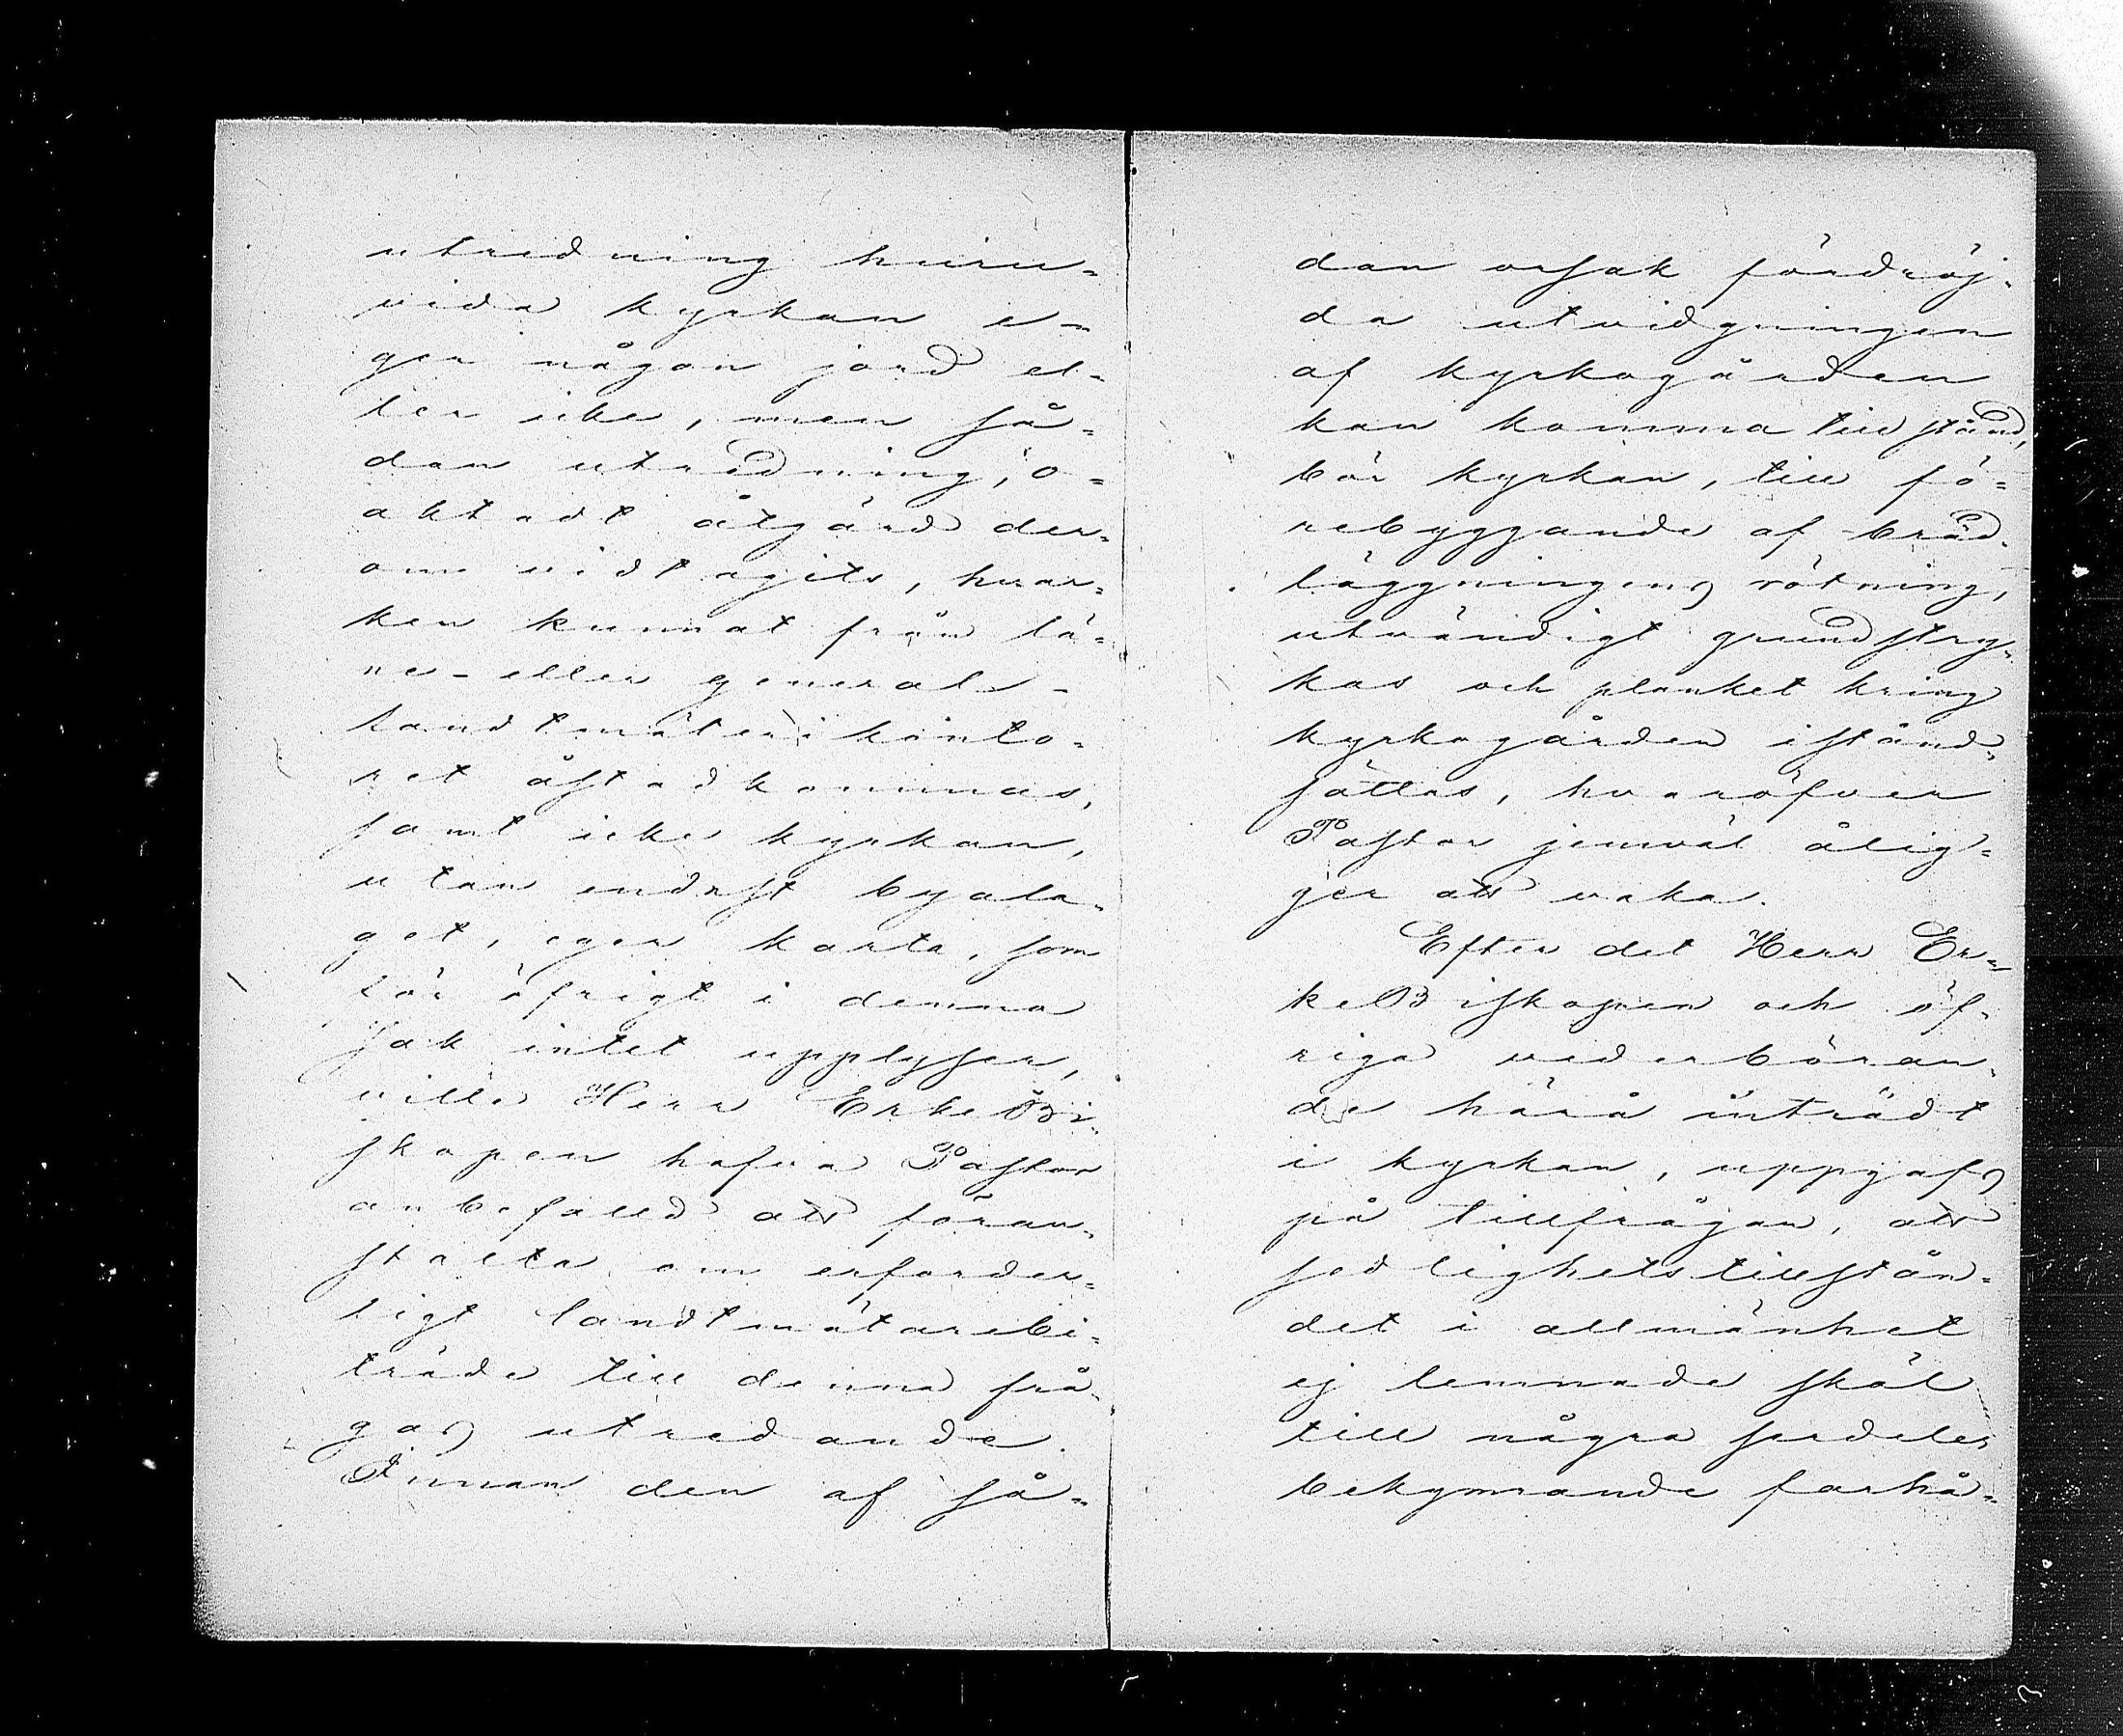 utredning huru=
vida kyrkan e=
ger någon jord el=
ler icke, men så=
dan utredning, o=
aktadt åtgärd der=
om vidtagits, hvar=
ken kunnat från lä=
ne- eller general-
landtmäterikonto=
ret åstadkommas,
samt icke kyrkan,
utan endast byala=
get, eger karta, som
för öfrigt i denna
sak intet upplyser,
ville Herr ErkeBi=
skopen hafva Pastor
anbefalld att föran=
stalta om erforder=
ligt landtmätarebi=
träde till denna frå=
gas utredande.
Innan den af så=
dan orsak fördröj=
da utvidgningen
af kyrkogården
kan komma till stånd,
bör kyrkan, till fö=
rebyggande af bräd=
läggningens rötning,
utvändigt grundstry=
kas och planket kring
kyrkogården istånd=
sättas, hvaröfver
Pastor jemväl ålig=
ger att vaka.
Efter det Herr Er=
keBiskopen och öf=
riga vederböran=
de härå inträdt
i kyrkan, uppgafs
på tillfrågan, att
sedlighetstillstån=
det i allmänhet
ej lemnade skäl
till några serdeles
bekymrande farhå=